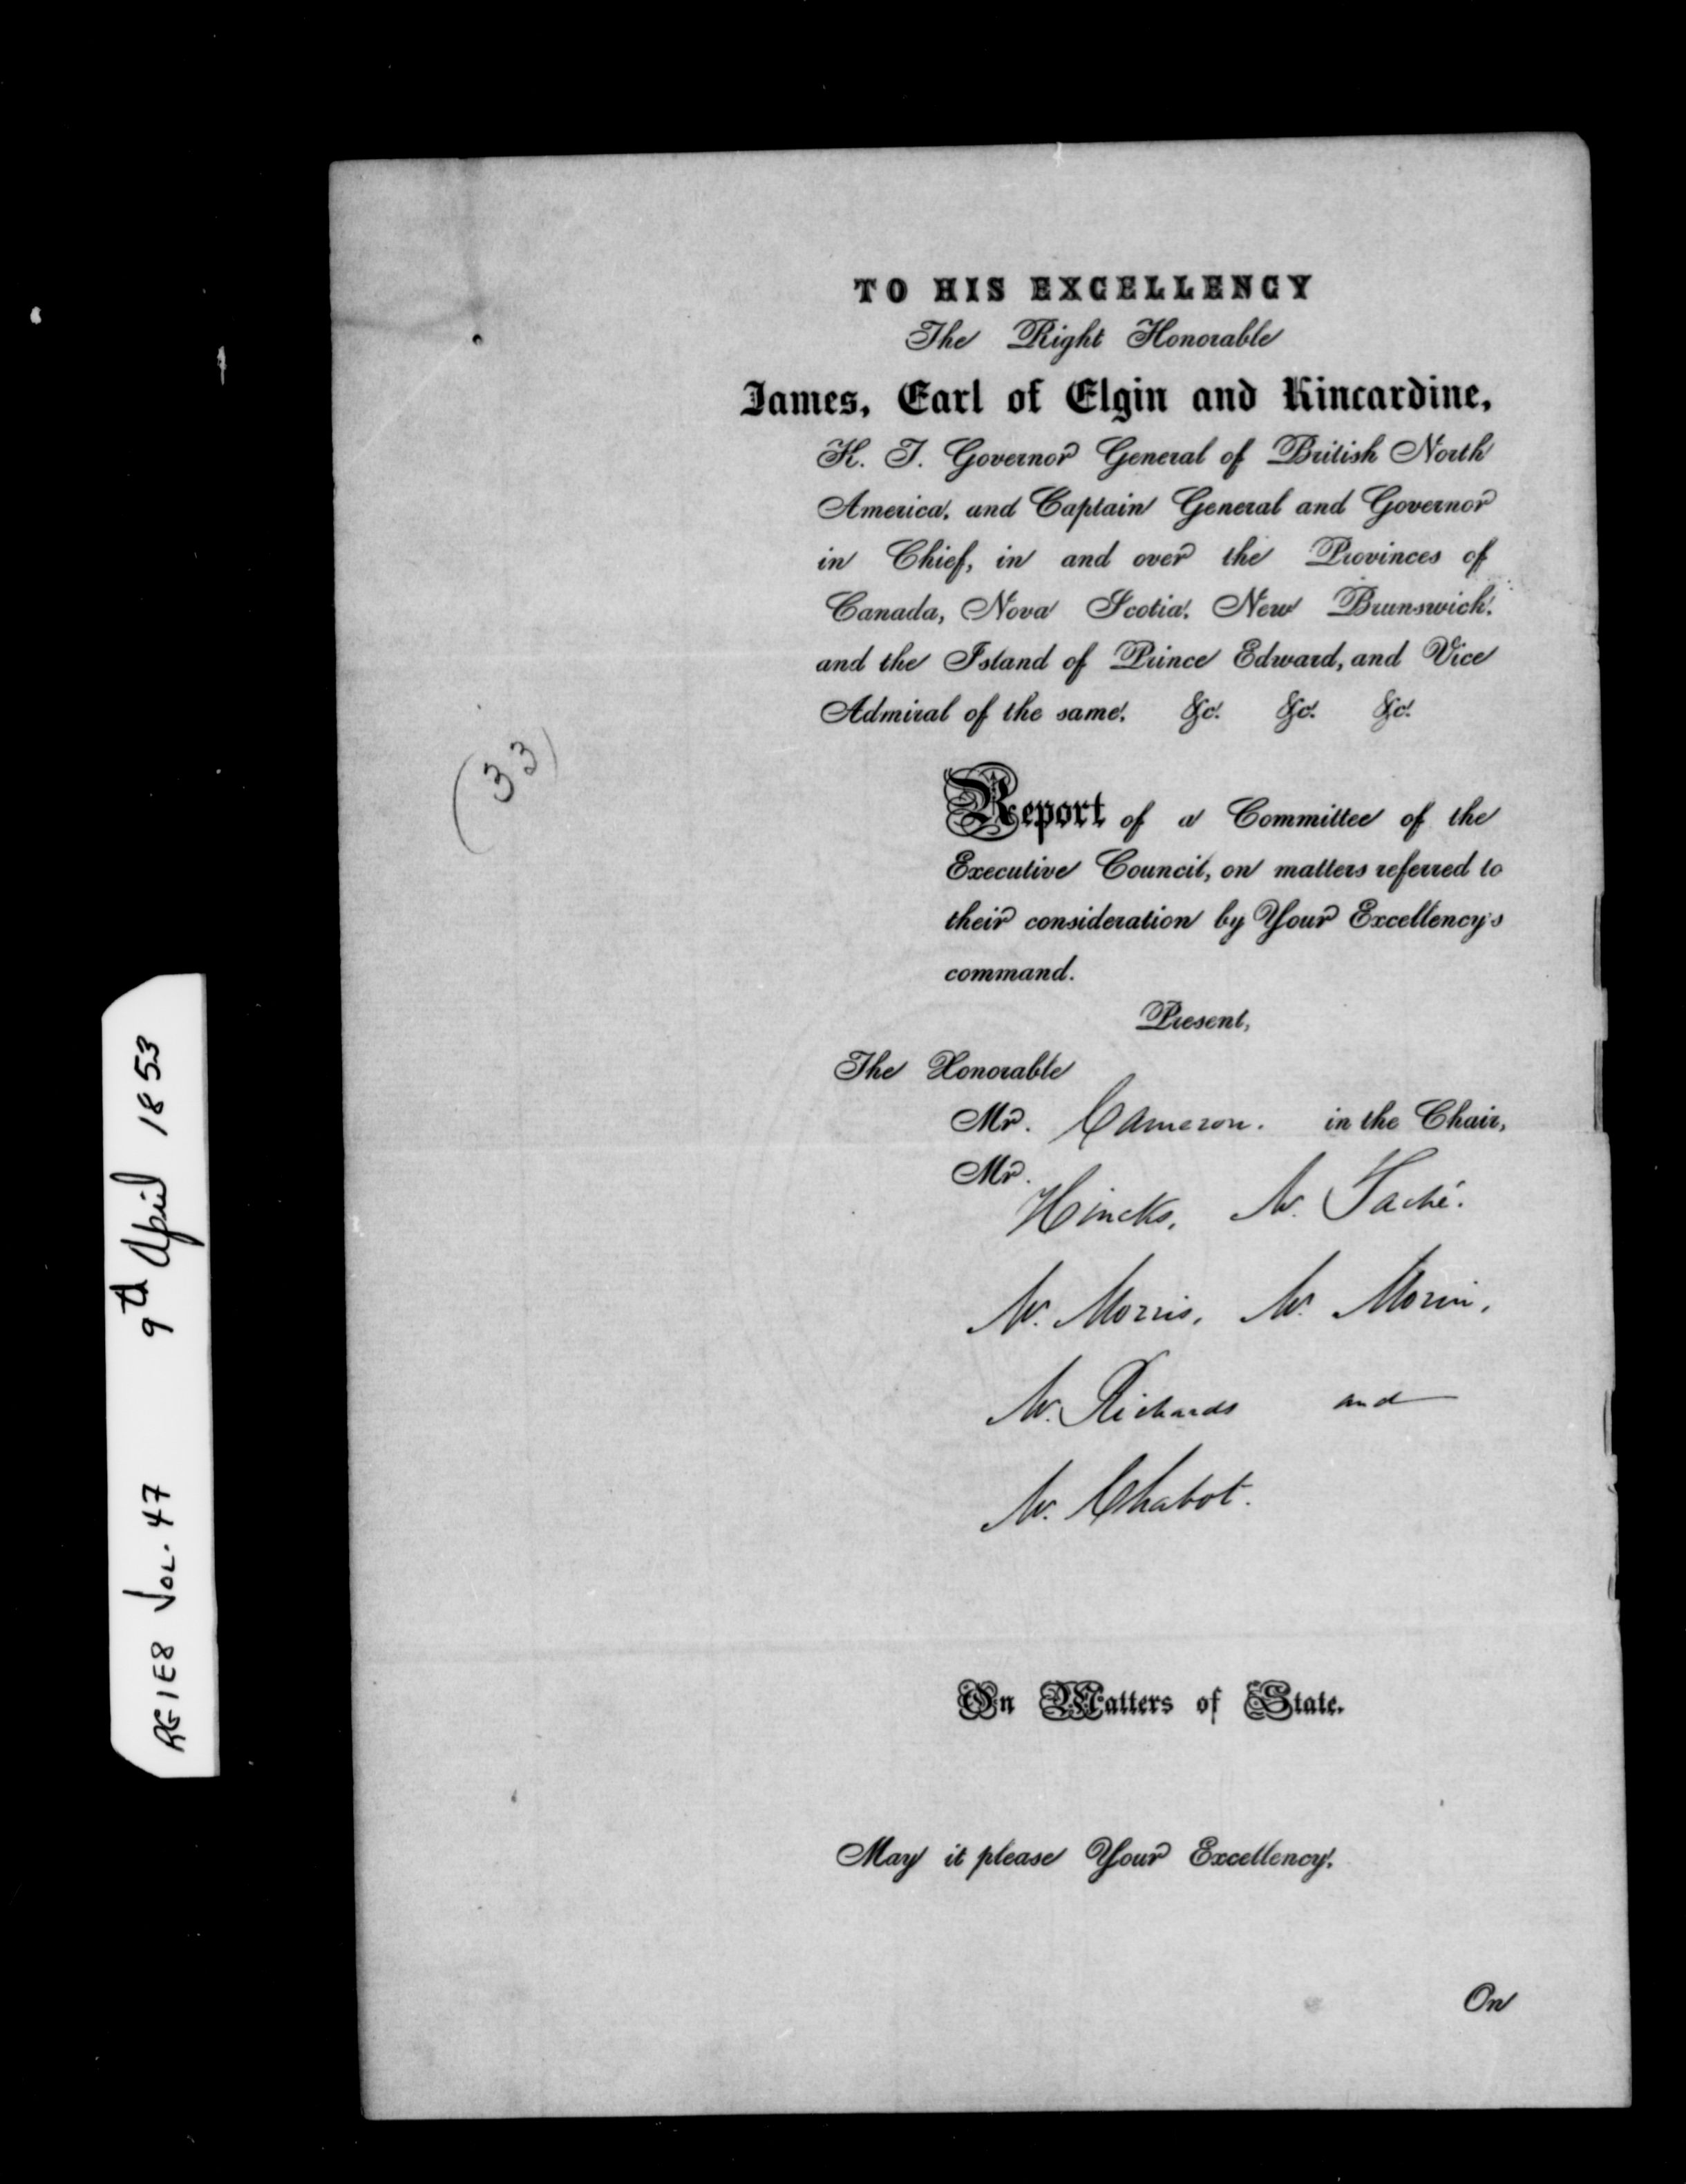 TO HIS EXCELLENCY
The Right Honorable
James, Earl of Elgin and Kincardine,
K. T. Governor General of British North
America, and Captain General and Governor
in Chief, in and over the Provinces of
Canada, Nova Scotia, New Brunswick,
and the Island of Prince Edward, and Vice
Admiral of the same, &c. &c. &c.
(33)
Report of a Committee of the
Executive Council, on matters referred to
their consideration by Your Excellency's
command.
Present,
The Honorable
Mr. Cameron. in the Chair,
Mr.
Hincks, Mr. Taché.
Mr. Morris, Mr. Morin,
Mr. Richards and
Mr. Chabot.
On Matters of State.
May it please Your Excellency,
On
RG1E8 VOL. 47 9th April 1853